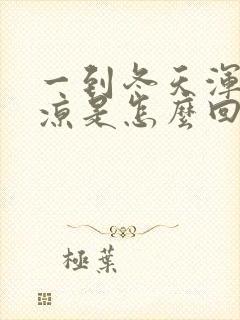 一到冬天渾
涼是怎麼回
極葉